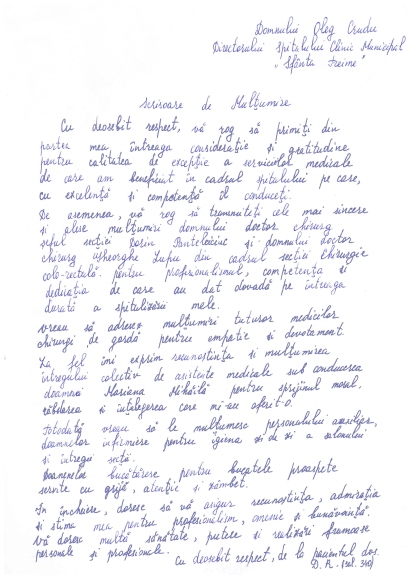 Domnului Oleg Crudu
Directorului Spitalului Clinic Municipal
„Sfânta Treime”
Scrisoare de Mulțumire
Cu deosebit respect, vă rog să primiți din
partea mea, întreaga considerație și gratitudine
pentru calitatea de excepție a serviciilor medicale
de care am beneficiat în cadrul spitalului pe care,
cu excelență și competență îl conduceți.
De asemenea, vă rog să transmiteți cele mai sincere
și alese mulțumiri domnului doctor chirurg
șeful secției Dorin și domnului doctor
chirurg Gheorghe Lupu din cadrul secției Chirurgie
colo-rectală pentru profesionalismul, competența și
dedicația de care au dat dovadă pe întreaga
durată a spitalizării mele.
Vreau să adresez mulțumiri tuturor medicilor
chirurgi de gardă pentru empatie și devotament.
La fel îmi exprim recunoștința și mulțumirea
întregului colectiv de asistente medicale sub conducerea
doamnei Mariana Mihăilă pentru sprijinul moral,
răbdarea și înțelegerea care mi-au oferit-o.
Totodată vreau să le mulțumesc personalului auxiliar,
doamnelor infirmiere pentru igiena zi de zi a salonului
și întregii secții.
Doamnelor bucătărese pentru bucatele proaspete
servite cu grijă, atenție și zâmbet.
În încheiere, doresc să vă asigur recunoștința, admirația
și stima mea pentru profesionalism, omenie și bunăvoință.
Vă doresc multă sănătate, putere și realizări frumoase
personale și profesionale.
Cu deosebit respect, de la pacientul dvs.
D. R. (sal. 340)